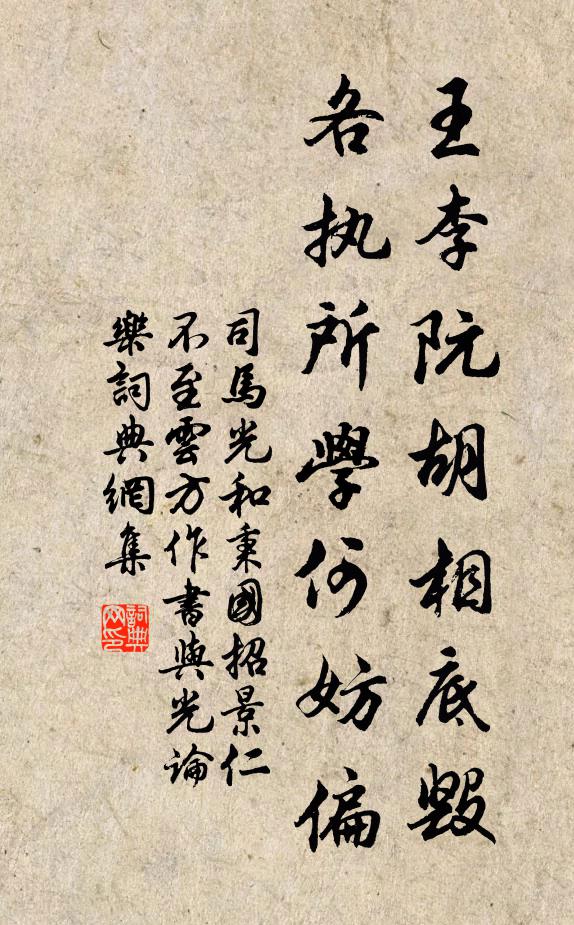 王李阮胡相底毀
各执所學何妨偏
司馬光和秉國招景仁
不至雲方作書與光論
樂詞典網集
詞典網印